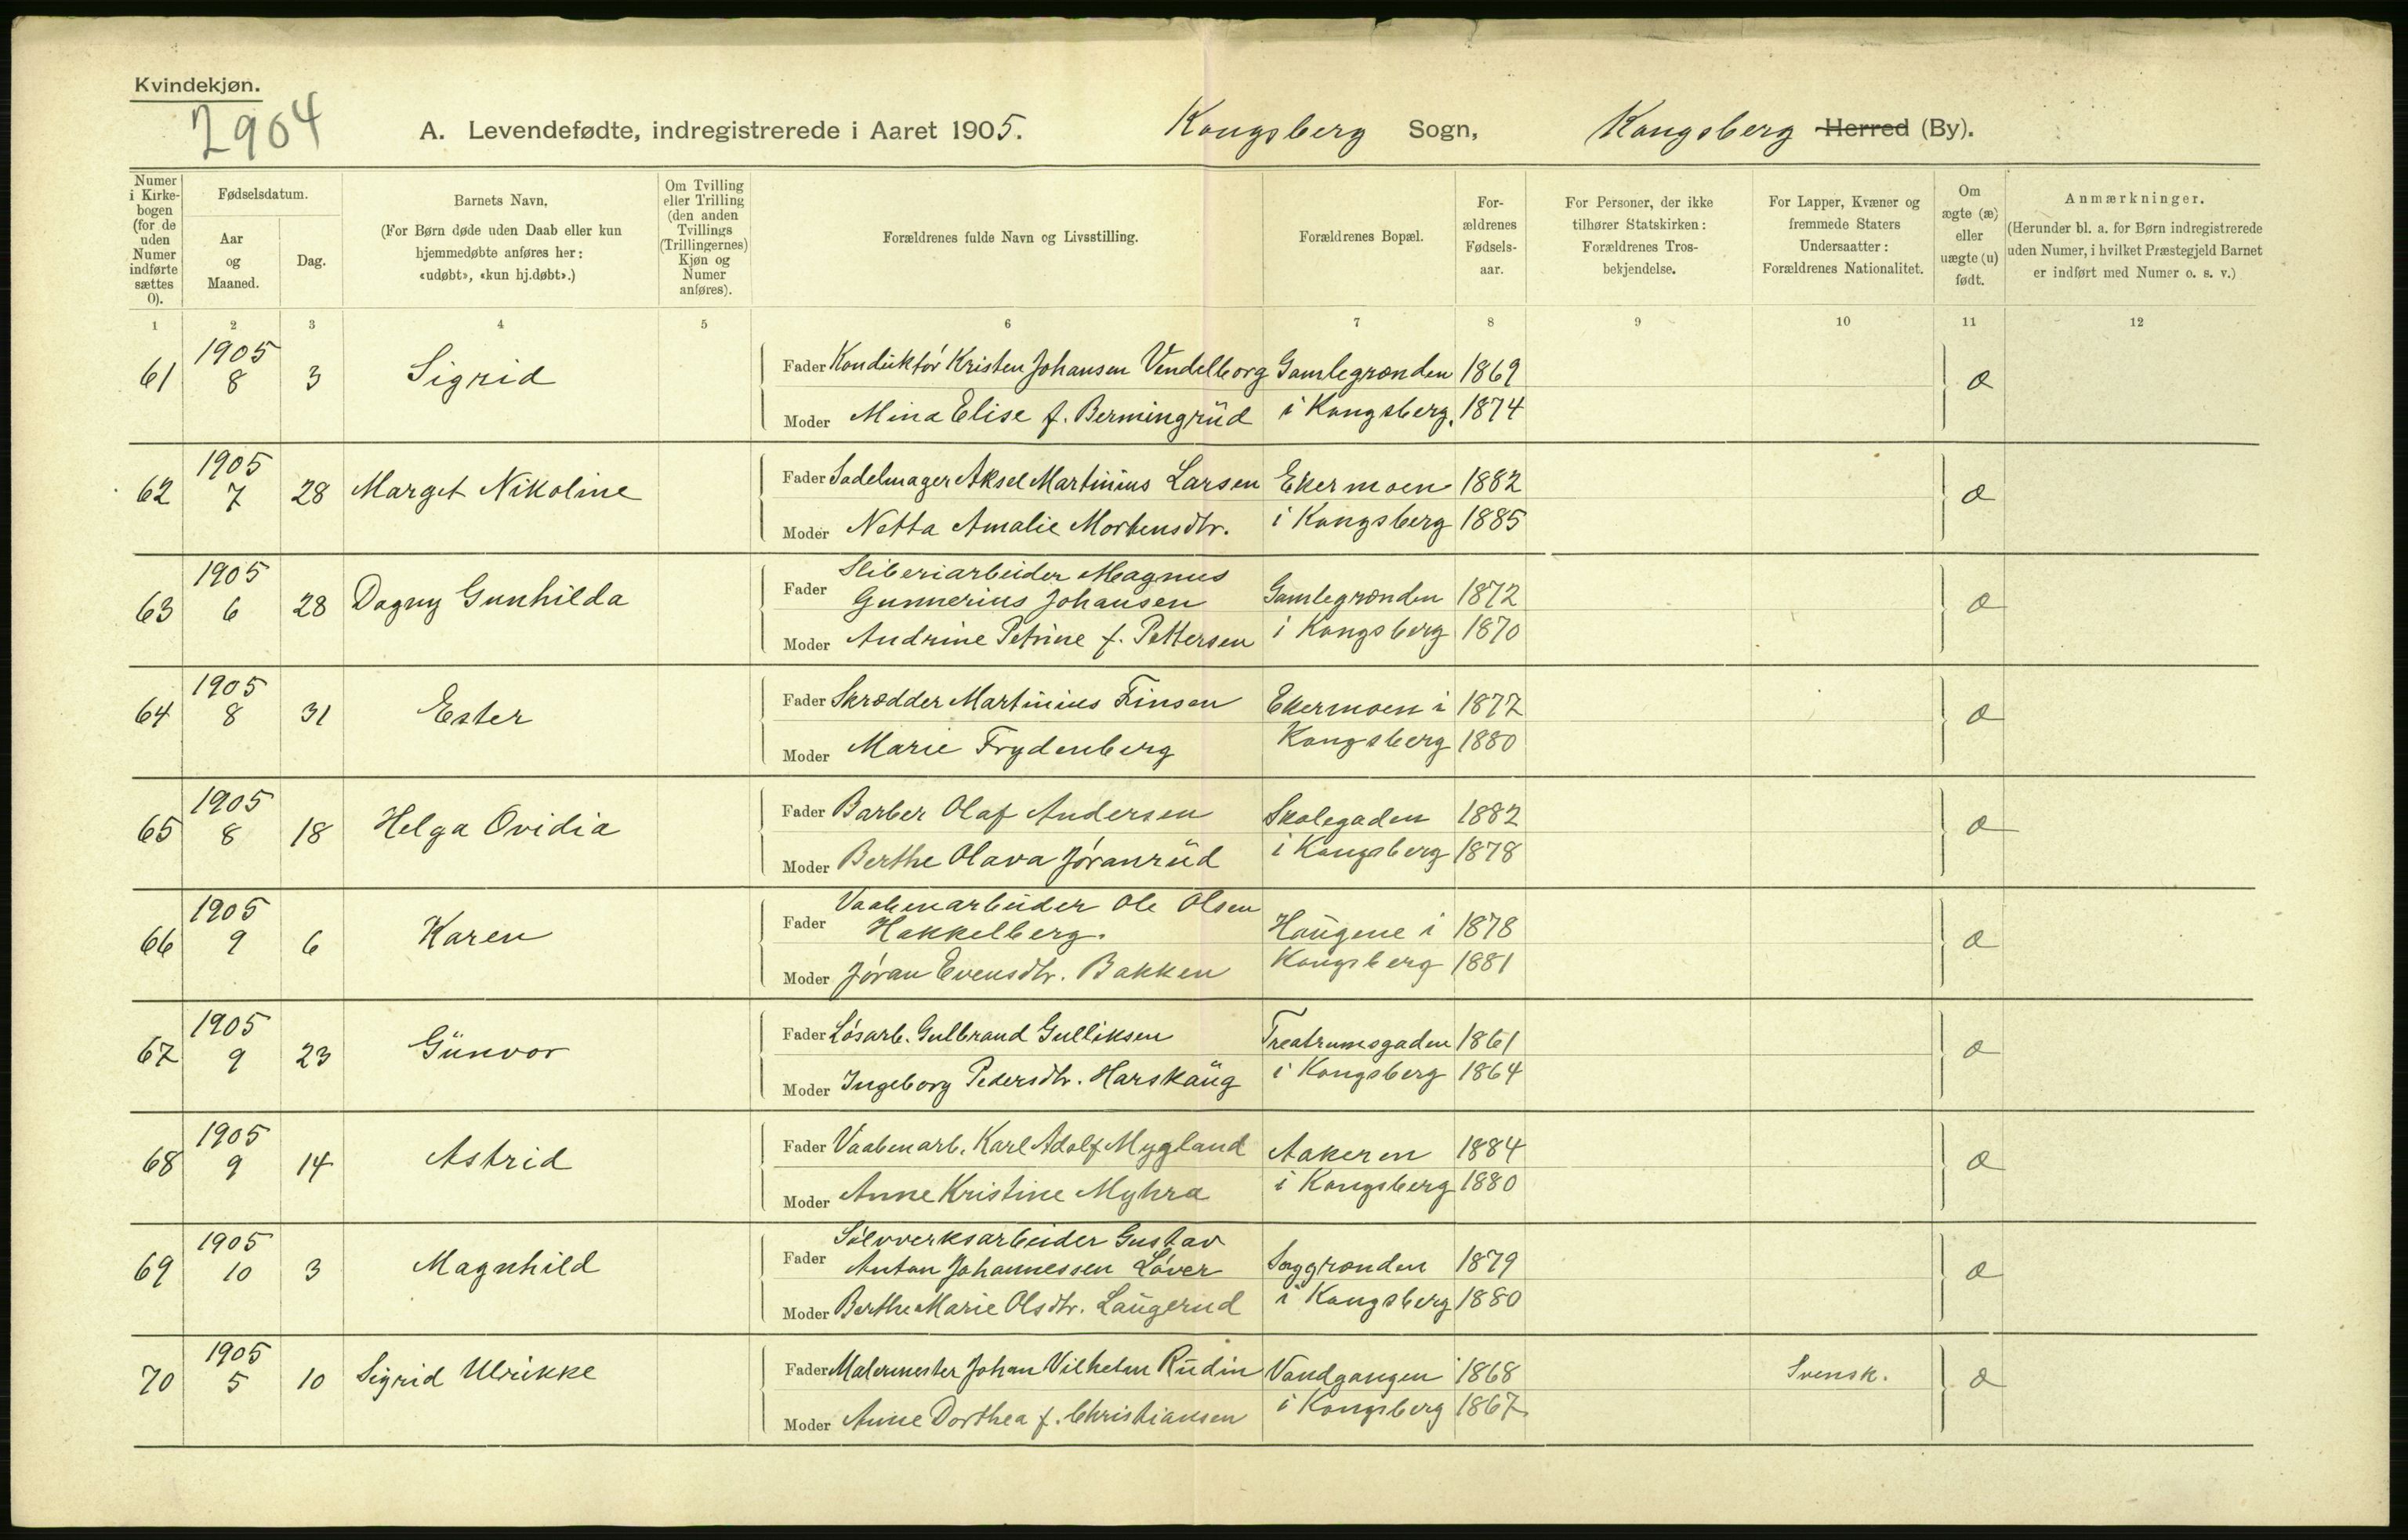 Kvindekjøn.
2904
A. Levendefødte, indregistrerede i Aaret 1905. Kongsberg Sogn, Kongsberg Herred (By).
Numer i Kirkebogen (for de uden Numer indførte sættes 0).
Fødselsdatum.
Aar og Maaned.
Dag.
Barnets Navn.
(For Børn døde uden Daab eller kun hjemmedøbte anføres her: «udøbt», «kun hj.døbt».)
Om Tvilling eller Trilling (den anden Tvillings (Trillingernes) Kjøn og Numer anføres).
Forældrenes fulde Navn og Livsstilling.
Forældrenes Bopæl.
Forældrenes Fødselsaar.
For Personer, der ikke tilhører Statskirken: Forældrenes Trosbekjendelse.
For Lapper, Kvæner og fremmede Staters Undersaatter: Forældrenes Nationalitet.
Om ægte (æ) eller uægte (u) født.
Anmærkninger.
(Herunder bl. a. for Børn indregistrerede uden Numer, i hvilket Præstegjeld Barnet er indført med Numer o. s. v.)
1 2 3 4 5 6 7 8 9 10 11 12
1905
61 8 3 Sigrid Fader Konduktór Kristen Johansen Vendelborg Gamlegrænden 1869 æ
Moder Mina Elise f. Bermingrüd i Kongsberg. 1874
1905
62 7 28 Marget Nikoline Fader Sadelmager Aksel Martinius Larsen Ekermoen 1882 æ
Moder Netta Amalie Mortensdtr. i Kongsberg 1885
1905
63 6 28 Dagny Gunhilda Fader Sliberiarbeider Magnus
Gunnerius Johansen Gamlegrænden 1872 æ
Moder Andrine Petrine f. Pettersen i Kongsberg 1870
1905
64 8 31 Ester Fader Skrædder Martinius Finsen Ekermoen i 1877 æ
Moder Marie Frydenberg Kongsberg 1880
1905
65 8 18 Helga Ovidia Fader Barber Olaf Andersen Skolegaden 1882 æ
Moder Berthe Olava Jóranrüd i Kongsberg 1878
1905
66 9 6 Karen Fader Vaabenarbeider Ole Olsen
Hakkelberg. Haügene i 1878 æ
Moder Jóran Evensdtr. Bakken Kongsberg 1881
1905
67 9 23 Günvor Fader Lósarb. Gulbrand Gulliksen Treatrumsgaden 1861 æ
Moder Ingeborg Pedersdtr. Harskaüg i Kongsberg 1864
1905
68 9 14 Astrid Fader Vaabenarb. Karl Adolf Mygland Aakeren 1884 æ
Moder Anne Kristine Myhra i Kongsberg 1880
1905
69 10 3 Magnhild Fader Sólvverksarbeider Gustav
Anton Johannessen Lóver Saggrænden 1879 æ
Moder Berthe Marie Olsdtr. Laügerud i Kongsberg 1880
1905
70 5 10 Sigrid Ulrikke Fader Malermester Johan Vilhelm Rüdin Vandgangen 1868 Svensk. æ
Moder Anne Dorthea f. Christiansen i Kongsberg 1867